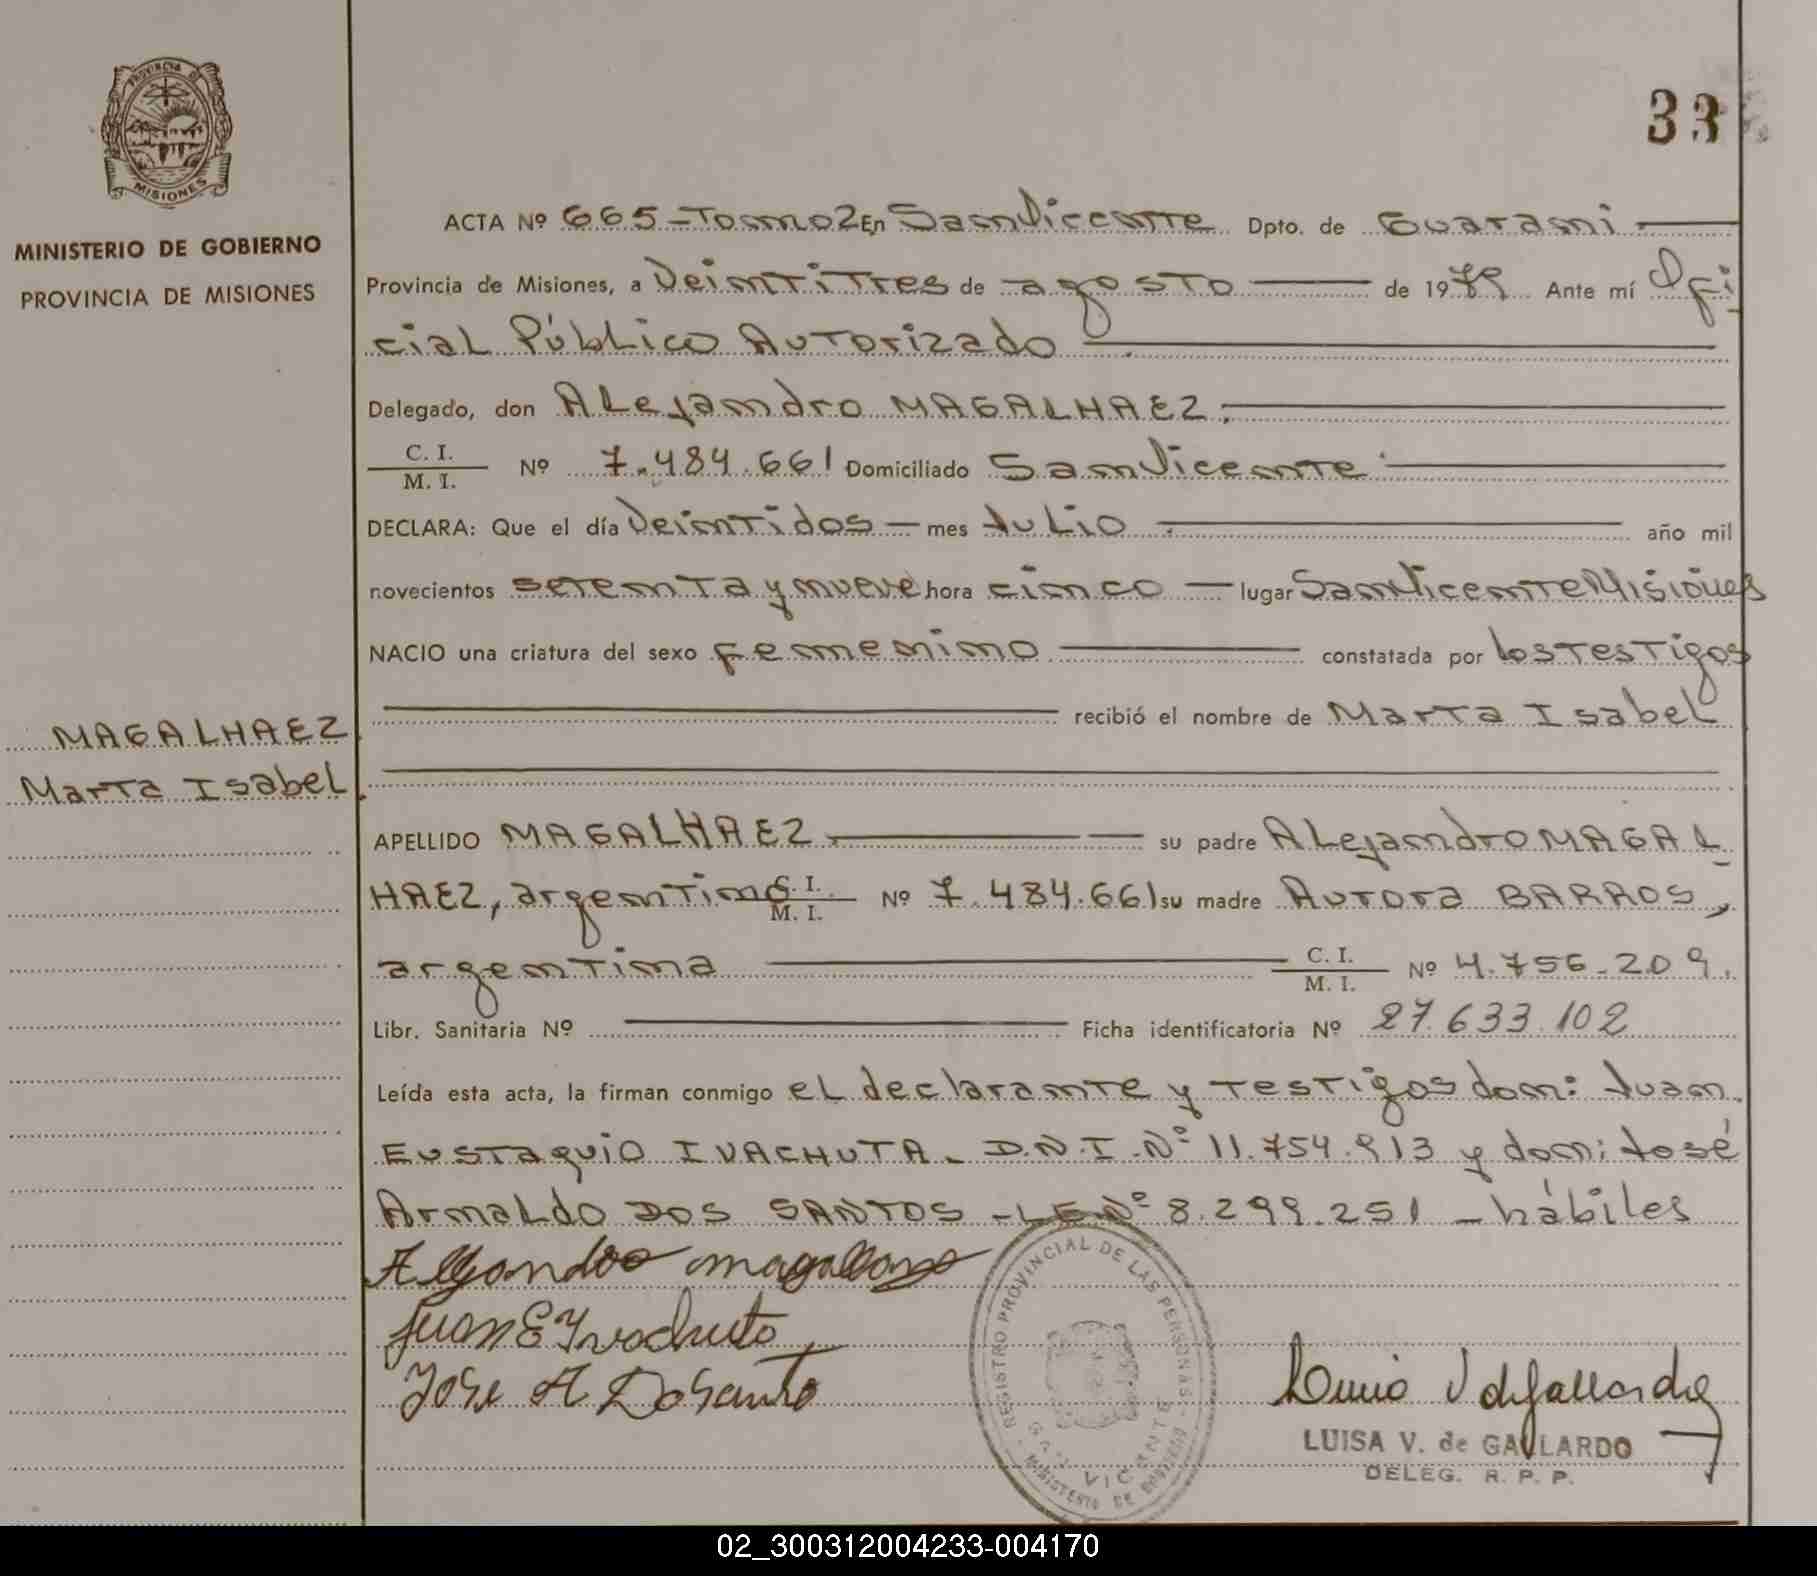 PROVINCIA DE
MISIONES
MINISTERIO DE GOBIERNO
PROVINCIA DE MISIONES
33
ACTA Nº 665-Tomo2 En San Vicente Dpto. de Guarani
Provincia de Misiones, a Veintitres de agosto de 1979 Ante mí Ofi
cial Público Autorizado
Delegado, don Alejandro MAGALHAEZ.
C. I.
M. I. Nº 7.484.661 Domiciliado San Vicente
DECLARA: Que el día Veintidos mes Julio año mil
novecientos setenta y nueve hora cinco lugar San Vicente Misiones
NACIO una criatura del sexo femenino constatada por los testigos
recibió el nombre de Marta Isabel
MAGALHAEZ
Marta Isabel
APELLIDO MAGALHAEZ su padre Alejandro MAGAL
HAEZ, argentino C. I. M. I. Nº 7.484.661 su madre Aurora BARROS,
argentina C. I. M. I. Nº 4.756.209.
Libr. Sanitaria Nº Ficha identificatoria Nº 27.633.102
Leída esta acta, la firman conmigo el declarante y testigos don: Juan
Eustaquio IVACHUTA - D.N.I. Nº 11.754.913 y don: José
Arnaldo DOS SANTOS - LE Nº 8.299.251 - hábiles
Juan E Ivachuta
Jose A Dosanto
REGISTRO PROVINCIAL DE LAS PERSONAS
SAN VICENTE
MINISTERIO DE GOBIERNO
LUISA V. de GALLARDO
DELEG. R. P. P.
02_300312004233-004170